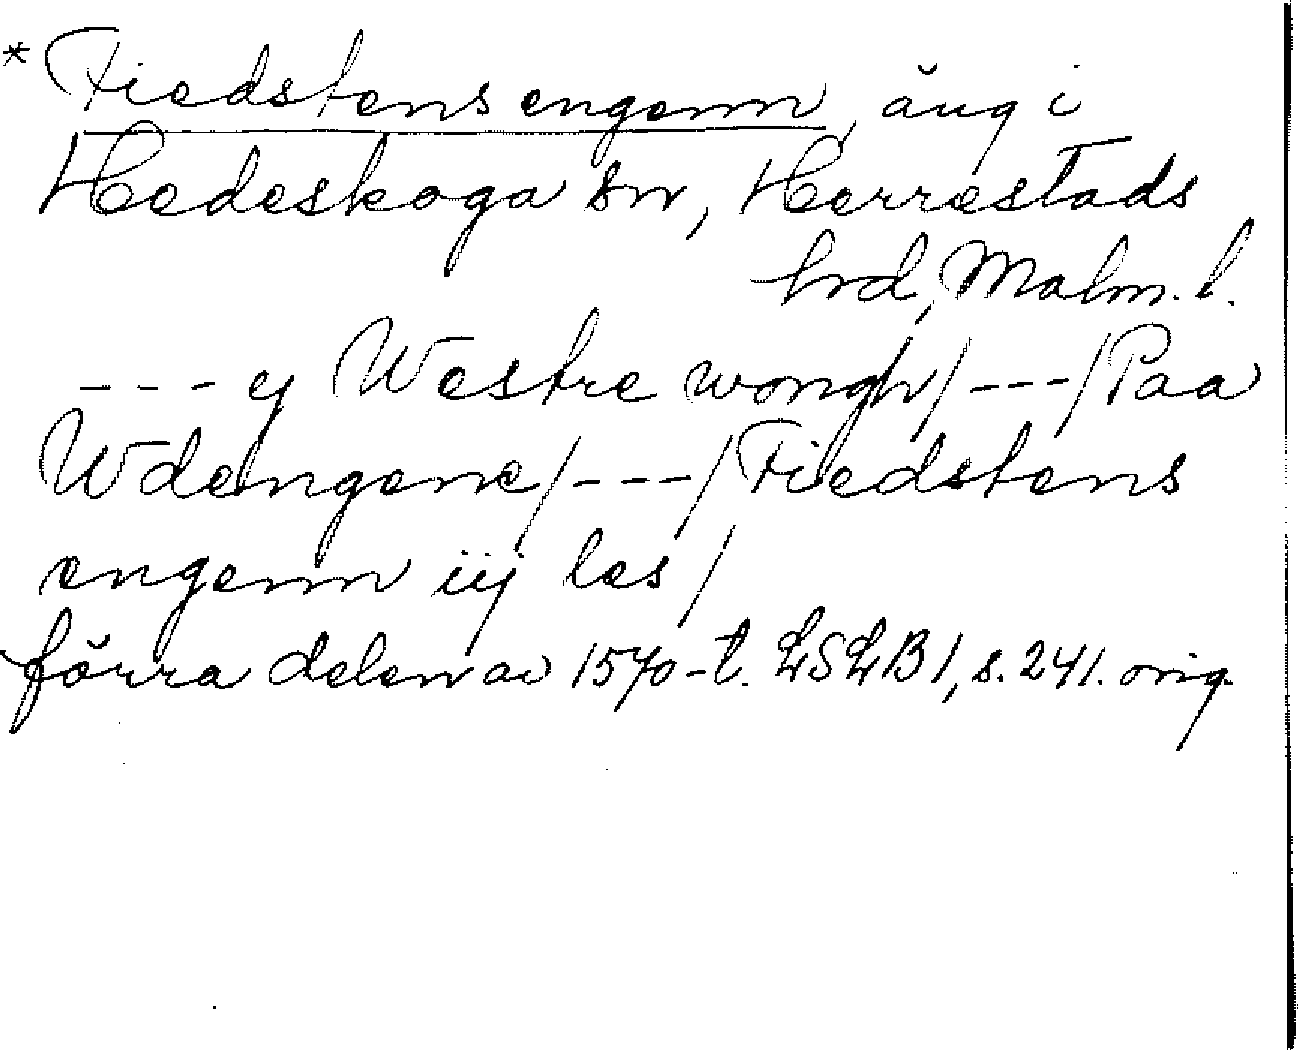 * Fiedstens engenn, äng i
Hedeskoga sn, Herrestads
hrd, Malm. l.
--- ej Westre wongh/---/Paa
Wdengene/---/Fiedstens
engenn iij les/
förra delen av 1570-t. LSLB 1, s. 241. orig.